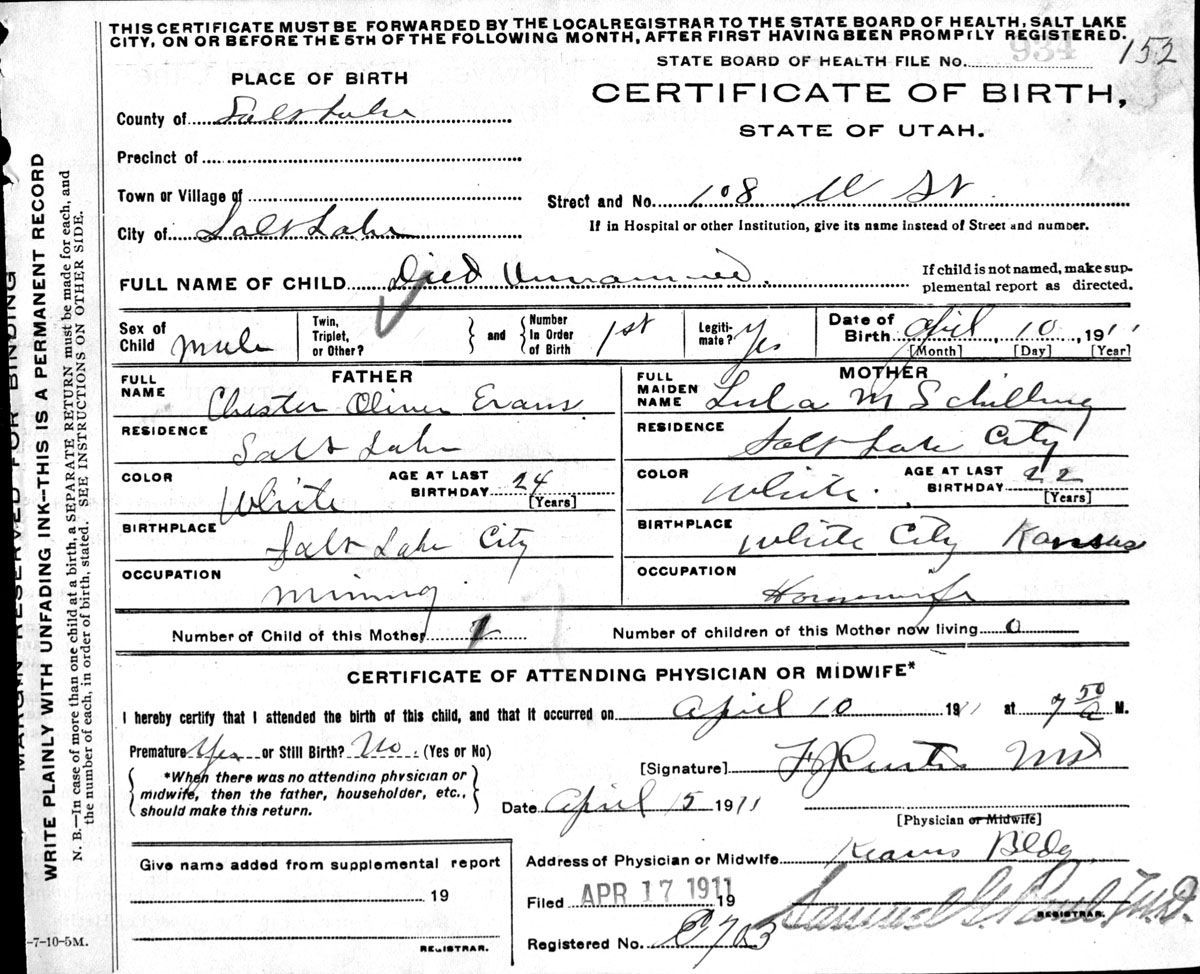 THIS CERTIFICATE MUST BE FORWARDED BY THE LOCAL REGISTRAR TO THE STATE BOARD OF HEALTH, SALT LAKE
CITY, ON OR BEFORE THE 5TH OF THE FOLLOWING MONTH, AFTER FIRST HAVING BEEN PROMPTLY REGISTERED.
STATE BOARD OF HEALTH FILE No. 934 152
PLACE OF BIRTH
CERTIFICATE OF BIRTH,
STATE OF UTAH.
County of Salt Lake
Precinct of
Town or Village of
Street and No. 108 St
City of Salt Lake
If in Hospital or other Institution, give its name instead of Street and number.
FULL NAME OF CHILD Died Unnamed
If child is not named, make sup-
plemental report as directed.
Sex of Child Male
Twin, Triplet, or Other?
and
Number In Order of Birth 1st
Legiti-mate? Yes
Date of Birth April 10, 1911
[Month] [Day] [Year]
FATHER
FULL NAME Chester Oliver Evans
RESIDENCE Salt Lake
COLOR White
AGE AT LAST BIRTHDAY 24 [Years]
BIRTHPLACE Salt Lake City
OCCUPATION Mining
MOTHER
FULL MAIDEN NAME Lula M Schilling
RESIDENCE Salt Lake City
COLOR White.
AGE AT LAST BIRTHDAY 22 [Years]
BIRTHPLACE White City Kansas
OCCUPATION Housewife
Number of Child of this Mother 1
Number of children of this Mother now living 0
CERTIFICATE OF ATTENDING PHYSICIAN OR MIDWIFE*
I hereby certify that I attended the birth of this child, and that it occurred on April 10 1911 at 7 50 a M.
Premature Yes or Still Birth? No. (Yes or No)
*When there was no attending physician or
midwife, then the father, householder, etc.,
should make this return.
[Signature] F J Curtis MD
Date April 15 1911
[Physician or Midwife]
Give name added from supplemental report
19
REGISTRAR.
Address of Physician or Midwife Kearns Bldg.
Filed APR 17 1911 19
Samuel G. Paul, M.D.
REGISTRAR.
Registered No.
-7-10-5M.
MARGIN RESERVED FOR BINDING
WRITE PLAINLY WITH UNFADING INK--THIS IS A PERMANENT RECORD
N. B.—In case of more than one child at a birth, a SEPARATE RETURN must be made for each, and
the number of each, in order of birth, stated. SEE INSTRUCTIONS ON OTHER SIDE.